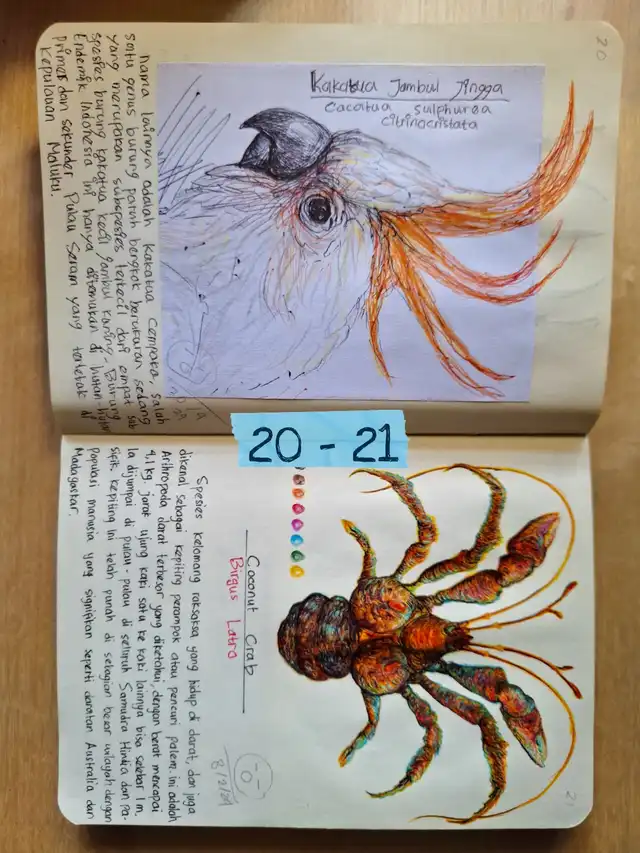 20
Kakatua Jambul Jingga
Cacatua sulphurea
citrinocristata
Nama lainnya adalah kakatua cempaka, salah
satu genus burung paruh bengkok berukuran sedang
yang merupakan subspesies terkecil dari empat sub
spesies burung kakatua kecil jambul kuning. Burung
Endemik Indonesia ini hanya ditemukan di hutan-hutan
primer dan sekunder Pulau Seram yang terletak di
Kepulauan Maluku.
20 - 21
Coconut Crab
Birgus Latro
Spesies kelomang raksaksa yang hidup di darat, dan juga
dikenal sebagai kepiting perampok atau pencuri palem. Ini adalah
Arthropoda darat terbesar yang diketahui, dengan berat mencapai
4,1 kg. Jarak ujung kaki satu ke kaki lainnya bisa selebar 1 m.
Ia dijumpai di pulau-pulau di seluruh Samudra Hindia dan Pa-
sifik. Kepiting ini telah punah di sebagian besar wilayah dengan
populasi manusia yang signifikan seperti daratan Australia dan
Madagaskar.
21